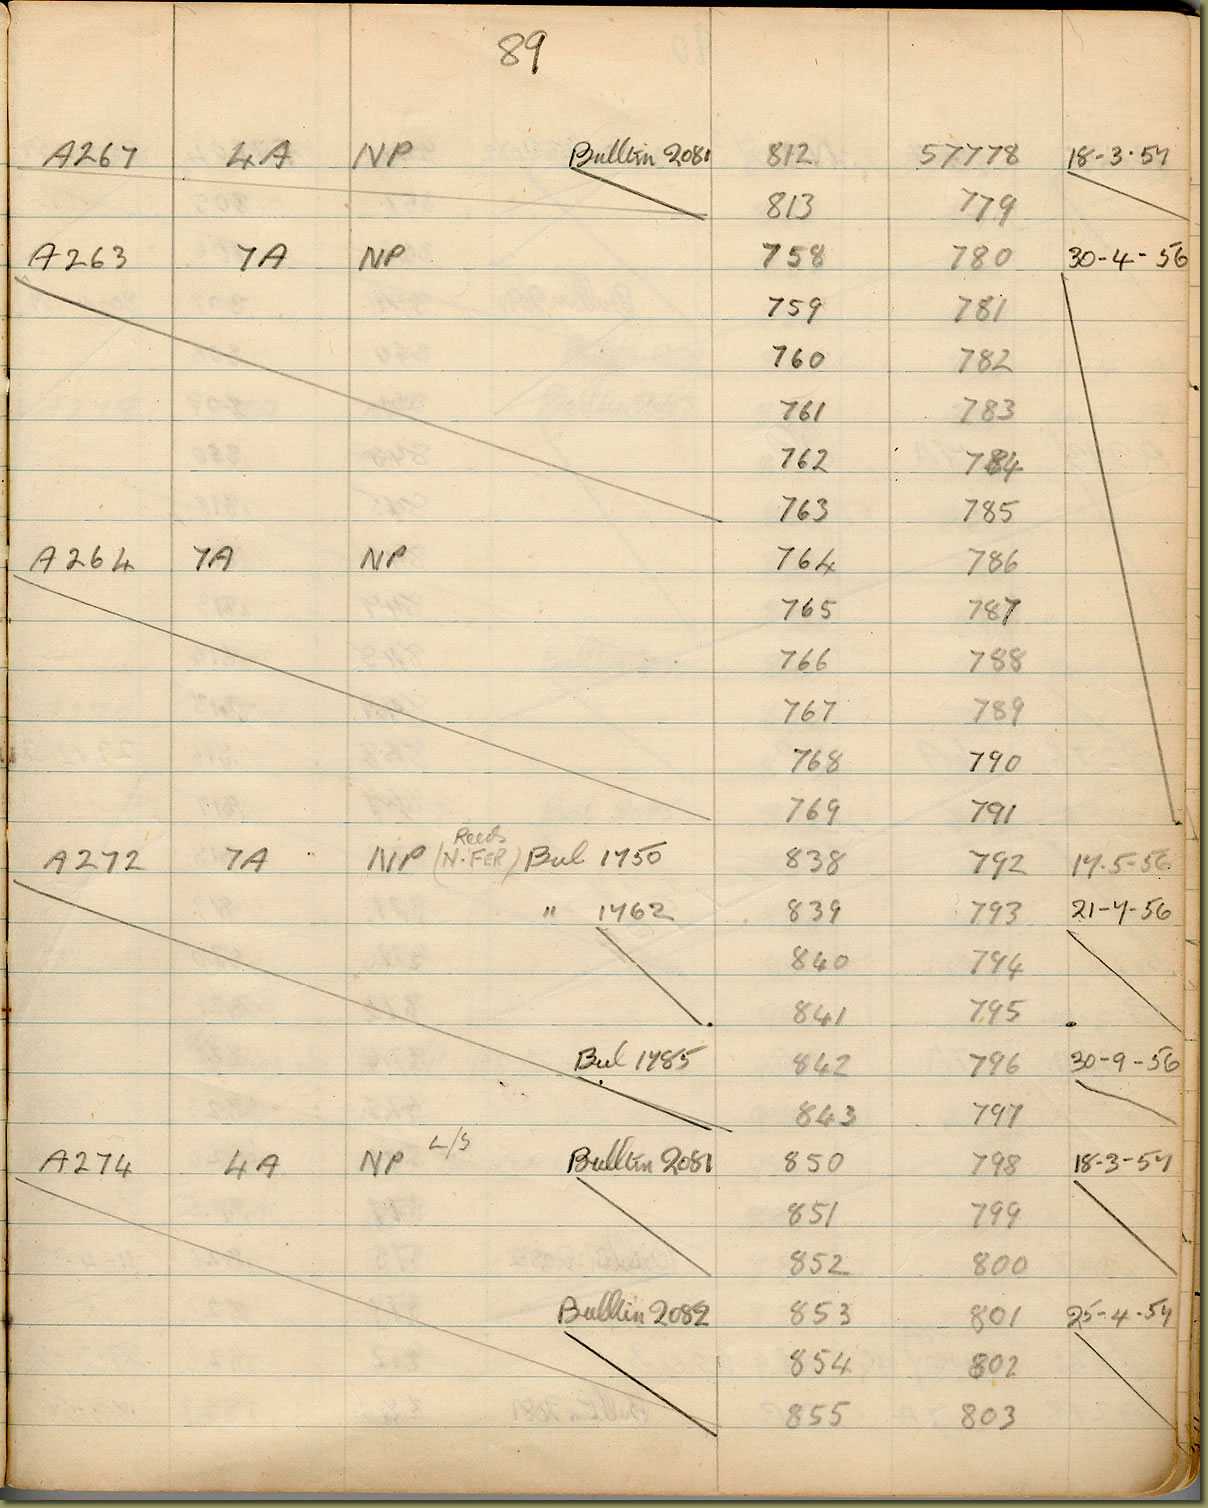 89
A267 4A NP Bulltin 2081 812 57778 18-3-57
813 779
A263 7A NP 758 780 30-4-56
759 781
760 782
761 783
762 784
763 785
A264 7A NP 764 786
765 787
766 788
767 789
768 790
769 791
A272 7A NP (Reeds N.FER) Bul 1750 838 792 17.5-56
" 1762 839 793 21-7-56
840 794
841 795
Bul 1785 842 796 30-9-56
843 797
A274 4A NP L/S Bulltin 2081 850 798 18-3-57
851 799
852 800
Bulltin 2082 853 801 25-4-57
854 802
855 803